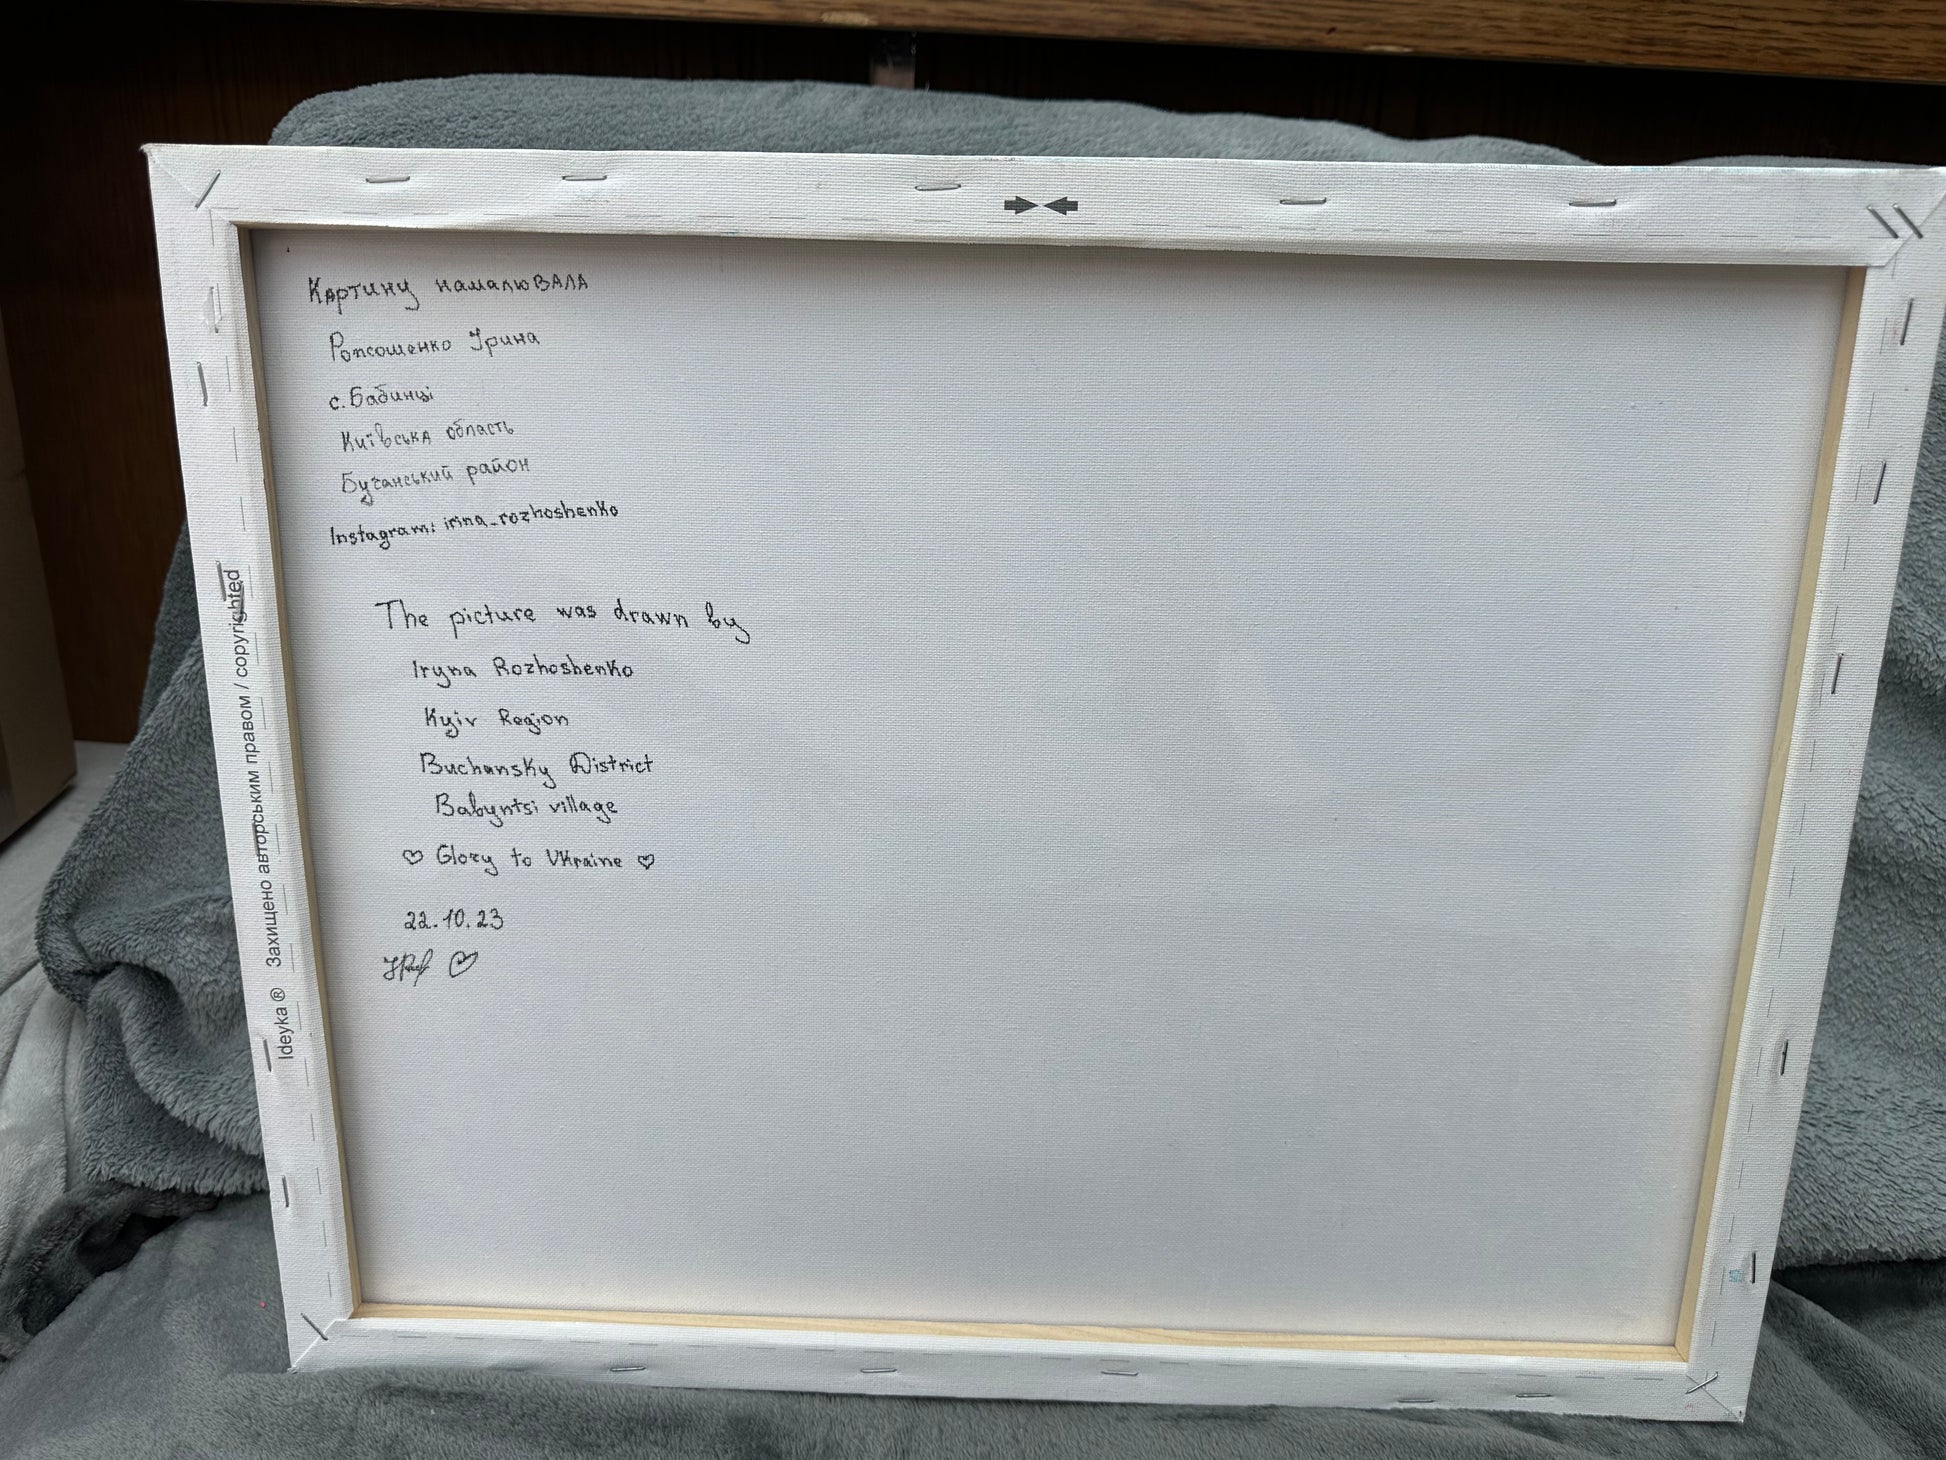 Картину намалювала
Рожошенко Ірина
с. Бабинці
Київська область
Бучанський район
Instagram: irina_rozhoshenko
The picture was drawn by
Iryna Rozhoshenko
Kyiv Region
Buchansky District
Babyntsi village
♡ Glory to Ukraine ♡
22.10.23
Ideyka ® Захищено авторським правом / copyrighted